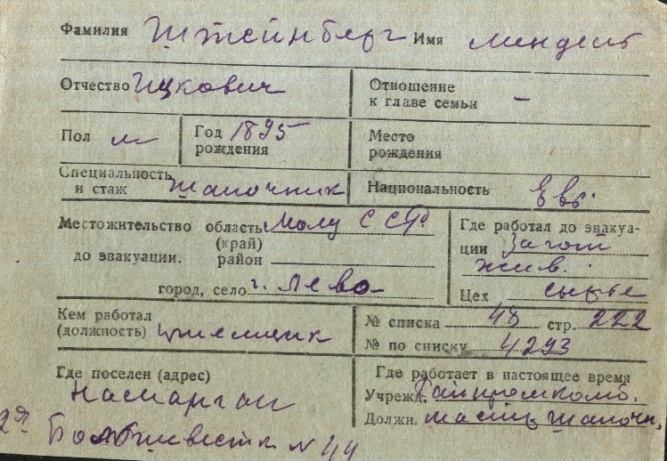 Фамилия Штейнберг Имя Мендель
Отчество Ицкович Отношение к главе семьи –
Пол м Год рождения 1895 Место рождения
Специальность и стаж шапочник Национальность Евр.
Местожительство до эвакуации. область (край) Молд ССР
район
город, село г. Лево
Где работал до эвакуации Загот
жив.
Цех сырье
Кем работал (должность) приемщик
№ списка 48 стр. 222
№ по списку 4293
Где поселен (адрес)
Наманган
2я Большевистк N 44
Где работает в настоящее время
Учрежд. Райпромкомб.
Должн. мастер шапочн.